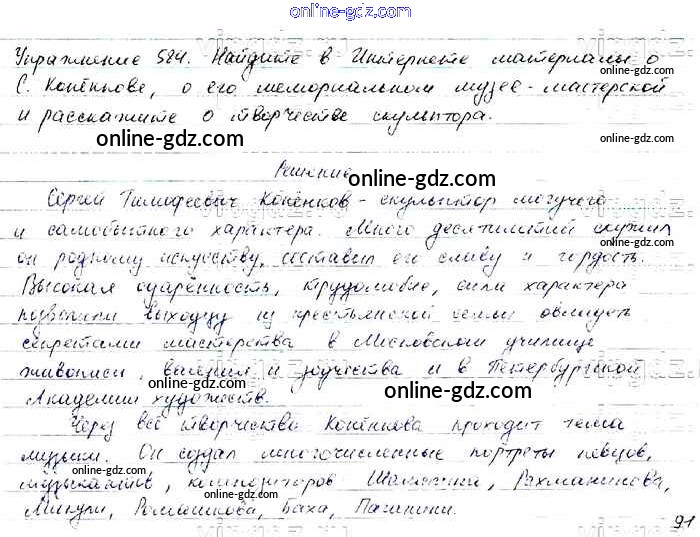 online-gdz.com
Упражнение 584. Найдите в Интернете материалы о
С. Конёнкове, о его мемориальном музее-мастерской
и расскажите о творчестве скульптора.
online-gdz.com
Решение
online-gdz.com
Сергей Тимофеевич Конёнков - скульптор могучего
и самобытного характера. Много десятилетий служил
он родному искусству, составил его славу и гордость.
Высокая одарённость, трудолюбие, сила характера
позволили выходцу из крестьянской семьи овладеть
секретами мастерства в Московском училище
живописи, ваяния и зодчества и в Петербургской
Академии художеств.
online-gdz.com
Через всё творчество Конёнкова проходит тема
музыки. Он создал многочисленные портреты певцов,
музыкантов, композиторов Шаляпина, Рахманинова,
Ромашкова, Баха, Паганини.
91